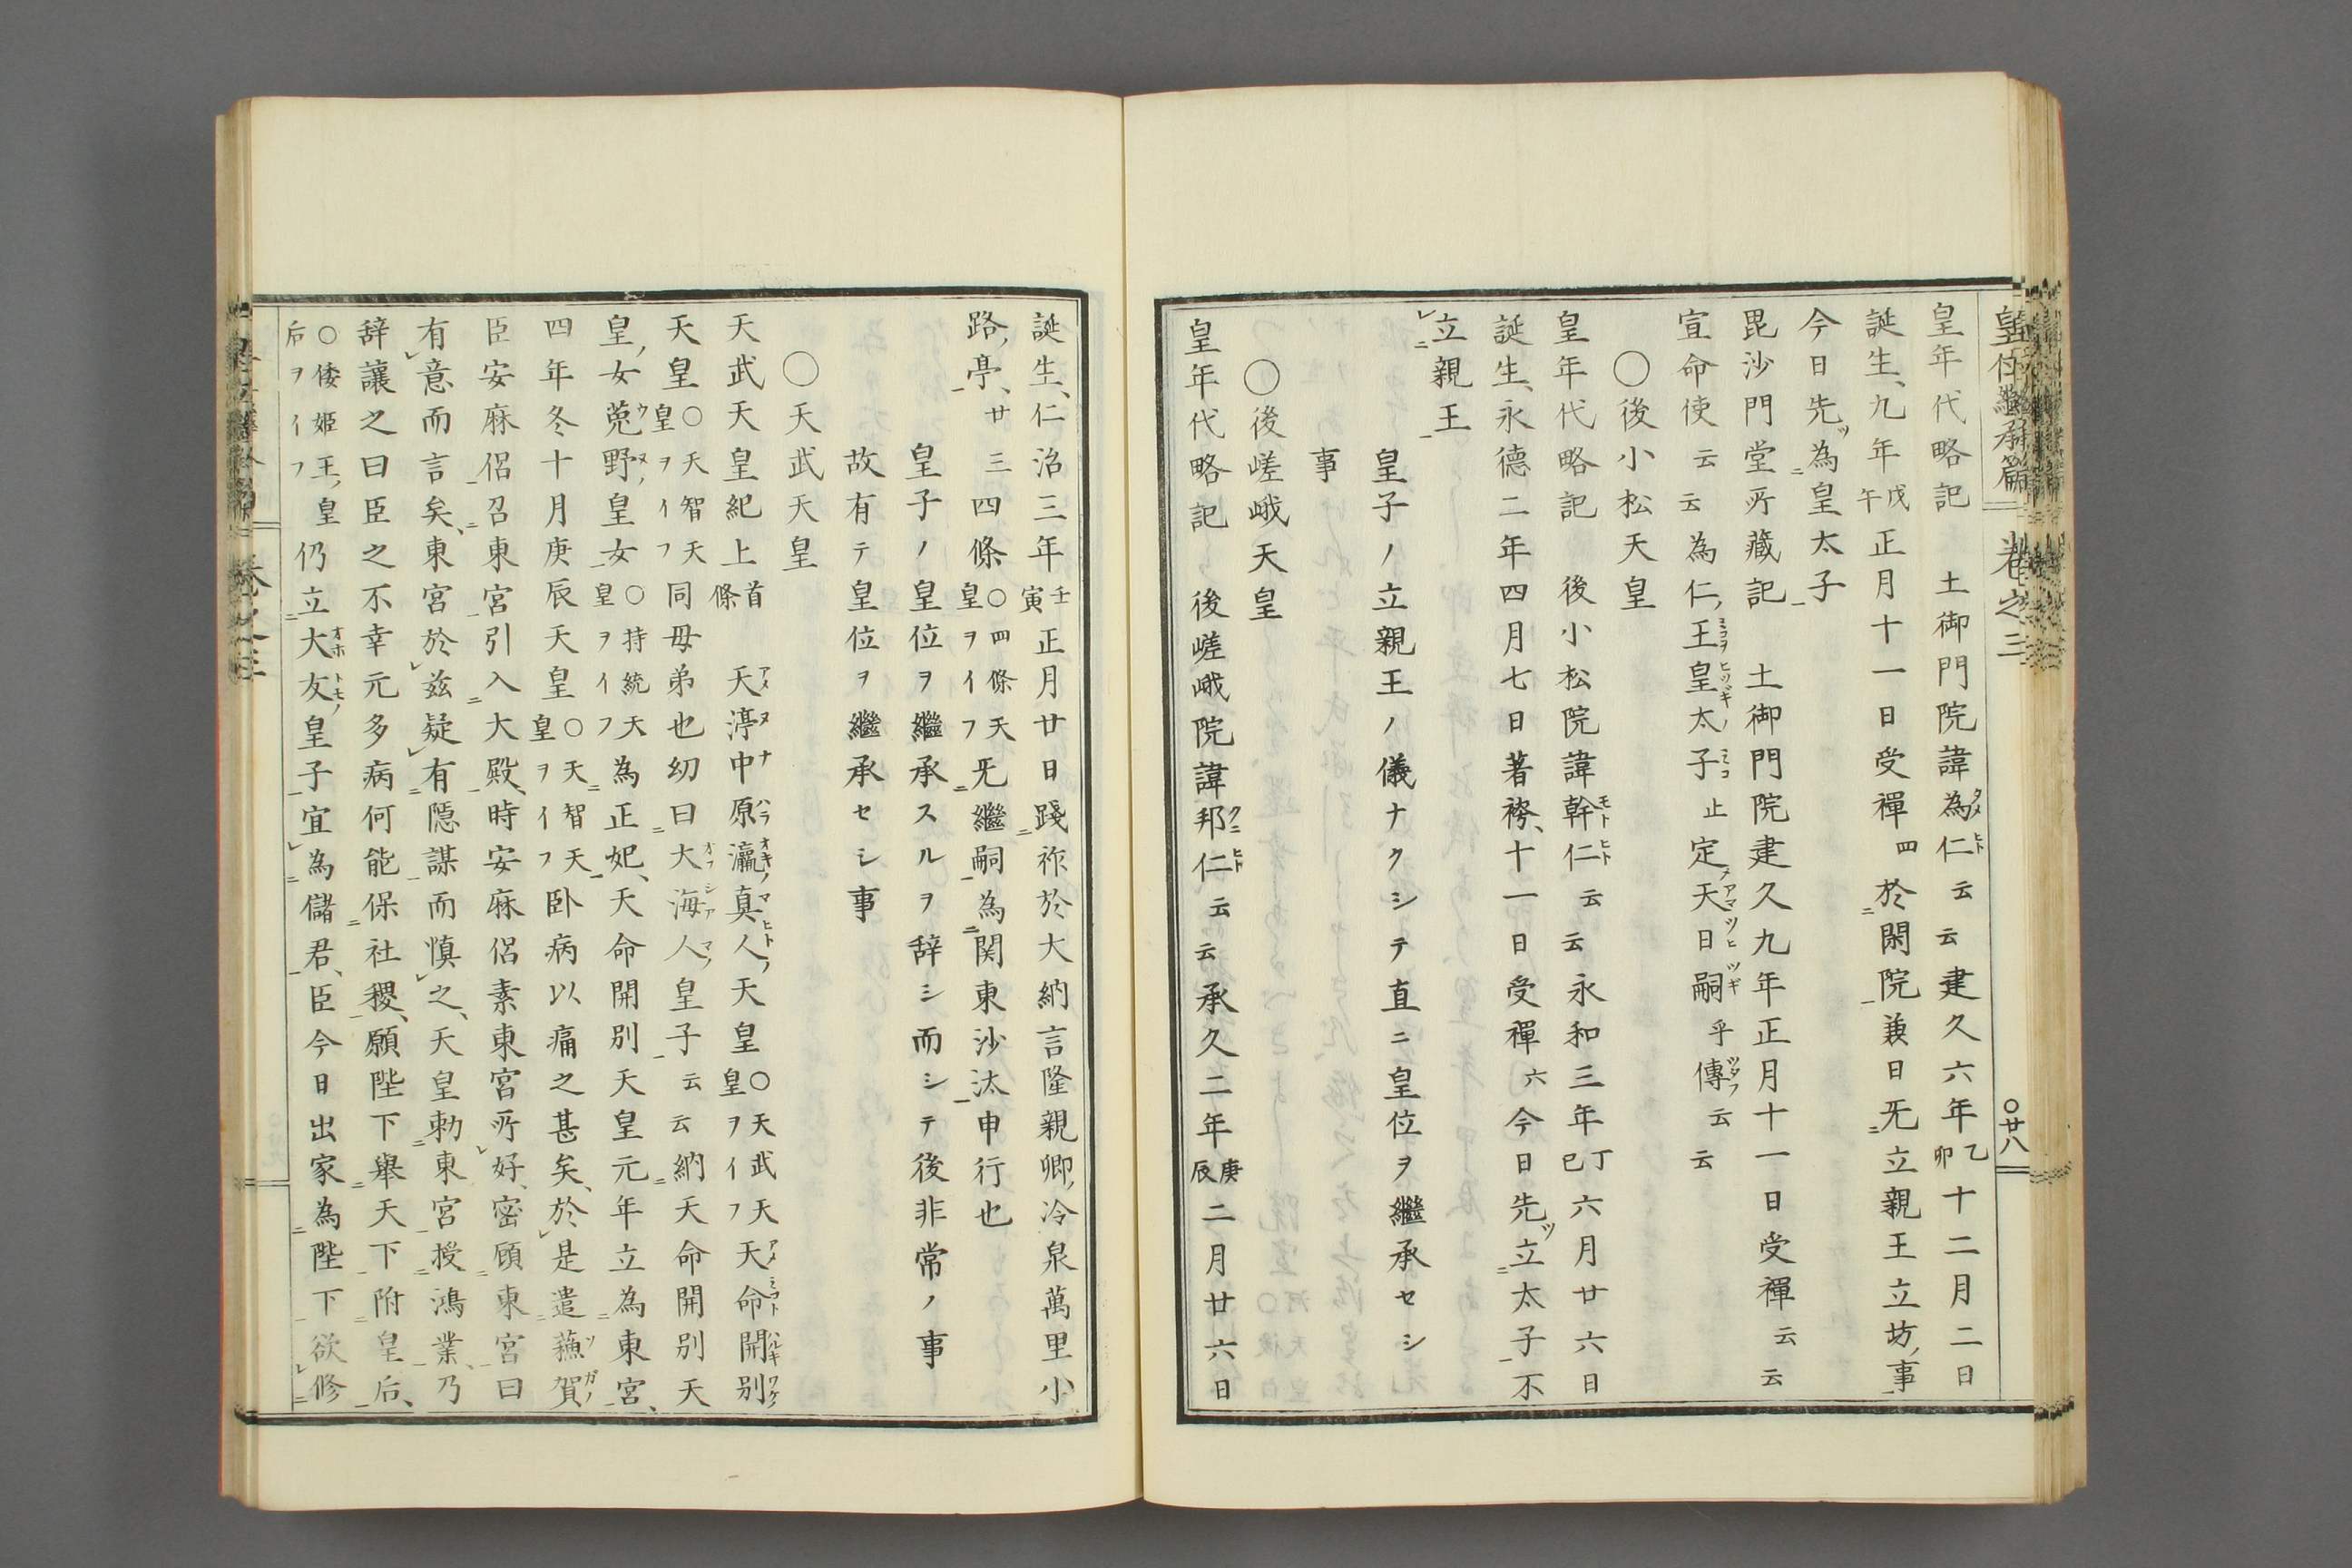 皇位繼承篇 卷之三 〇廿八
皇年代略記 土御門院諱為仁云云建久六年乙卯十二月二日
誕生、九年戊午正月十一日受禪四於閑院兼日旡立親王立坊ノ事
今日先ツ為皇太子
毘沙門堂所藏記 土御門院建久九年正月十一日受禪云云
宣命使云云為仁ノ王皇太子止定ノ天日嗣乎傳云云
〇後小松天皇
皇年代略記 後小松院諱幹仁云云永和三年丁巳六月廿六日
誕生、永德二年四月七日著袴、十一日受禪六今日先ツ立太子不
立親王
皇子ノ立親王ノ儀ナクシテ直ニ皇位ヲ繼承セシ
事
〇後嵯峨天皇
皇年代略記 後嵯峨院諱邦仁云云承久二年庚辰二月廿六日
誕生、仁治三年壬寅正月廿日踐祚於大納言隆親卿ノ冷泉萬里小
路ノ亭、廿三四條〇四條天皇ヲイフ旡繼嗣為関東沙汰申行也
皇子ノ皇位ヲ繼承スルヲ辞シ而シテ後非常ノ事
故有テ皇位ヲ繼承セシ事
〇天武天皇
天武天皇紀上首條 天渟中原瀛真人ノ天皇〇天武天皇ヲイフ天命開別
天皇〇天智天皇ヲイフ同母弟也幼曰大海人ノ皇子云云納天命開別天
皇ノ女菟野ノ皇女〇持統天皇ヲイフ為正妃、天命開別天皇元年立為東宮、
四年冬十月庚辰天皇〇天智天皇ヲイフ卧病以痛之甚矣、於是遣蘓賀
臣安麻侶召東宮引入大殿、時安麻侶素東宮所好、密顧東宮曰
有意而言矣、東宮於玆疑有隱謀而慎之、天皇勅東宮授鴻業、乃
辞讓之曰臣之不幸元多病何能保社稷、願陛下舉天下附皇后、
〇倭姬王ノ皇后ヲイフ仍立大友ノ皇子宜為儲君、臣今日出家為陛下欲修